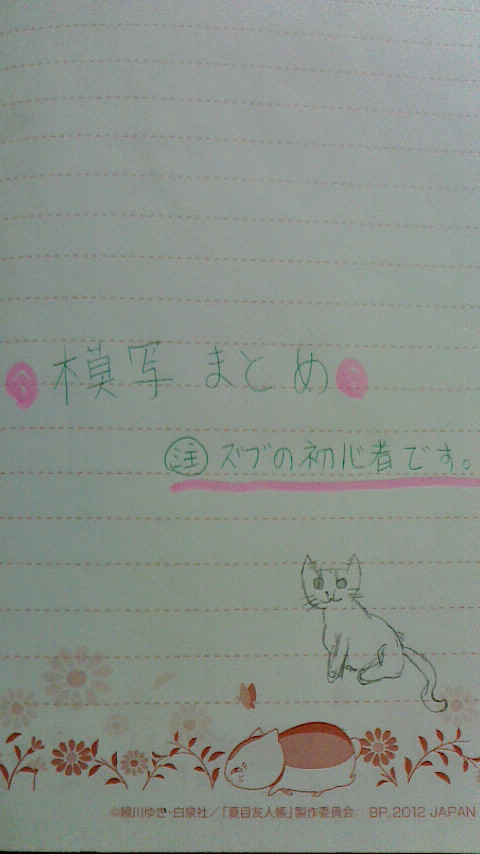 模写 まとめ
注 ズブの初心者です。
©緑川ゆき・白泉社/「夏目友人帳」製作委員会 BP.2012 JAPAN